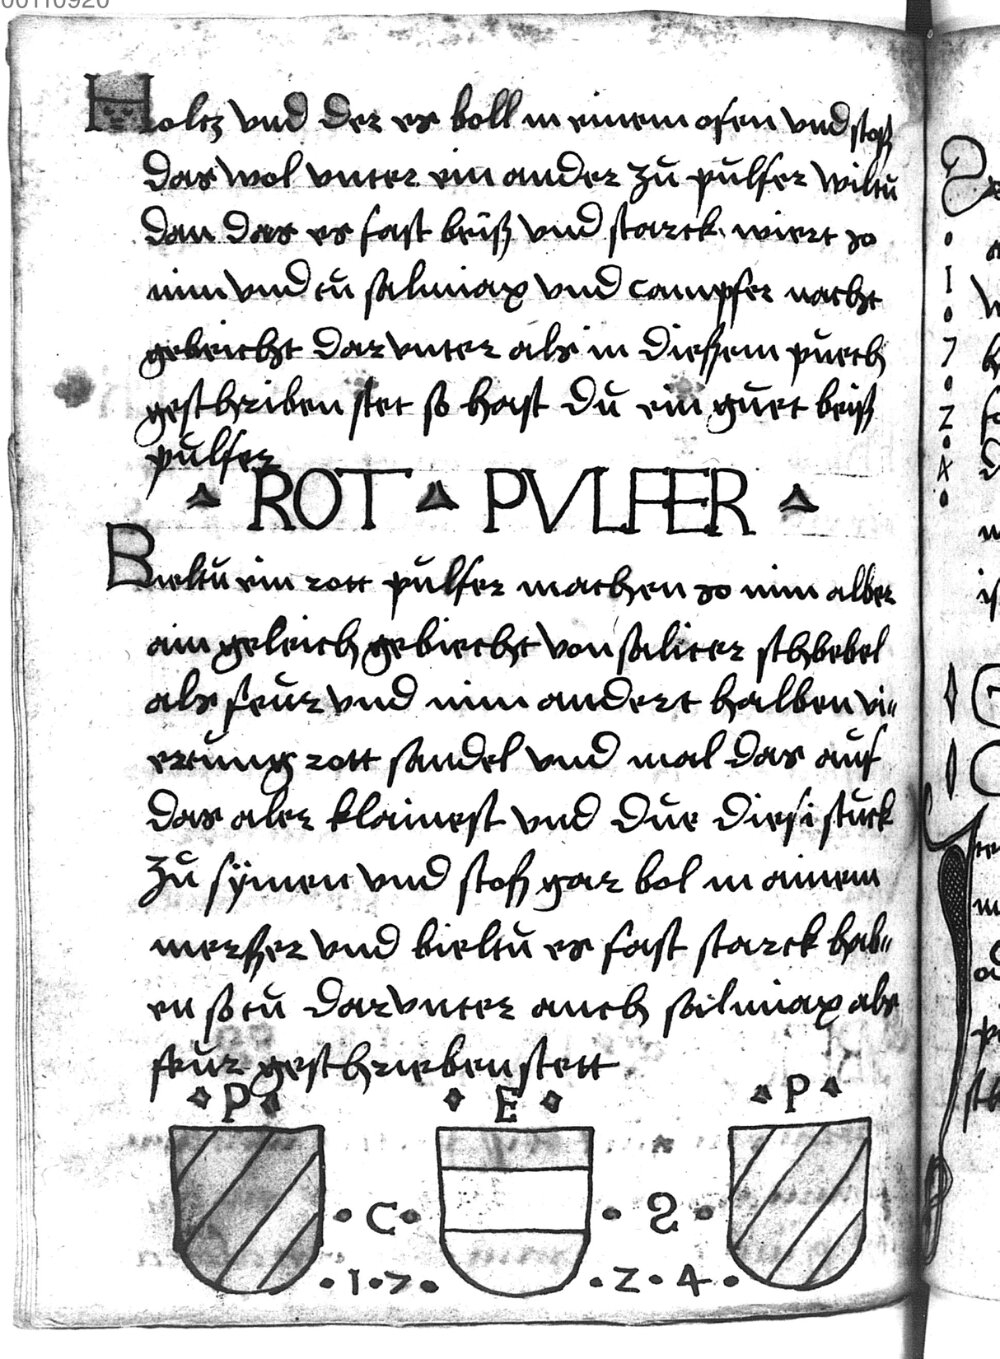 00110920
Holcz vnd der er boll in einem ofen vnd stoß
das wol vnter ein ander zŭ pŭlfer wiltŭ
dan das es fast beiß vnd starck wiert so
nim vnd tŭ salmiax vnd campfer nacht
gebeicht dar vnter als in dießem pŭech
geschriben stet so hast dŭ ein gŭet beiß
pŭlfer
ROT PVLFER
Bieltŭ ein rott pŭlfer machen so nim alber
ain geleich gebiecht von saliter schbebel
als feŭr vnd nim andert halben vi=
ertŭng rott sandel vnd mal das auf
das aler klainest vnd dŭe diesi stŭck
zŭ sÿmen vnd stoß gar bol in ainem
merßer vnd bieltŭ es fast starck hab=
en so tŭ dar vnter auch salmiax als
feŭr geschrieben stett
P E P
C S
1 7 Z 4
1
7
Z
4